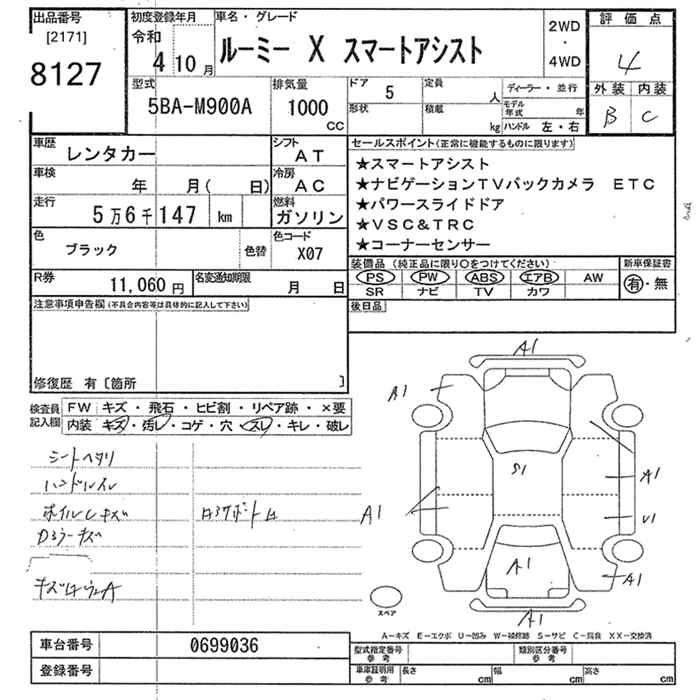 出品番号
[2171]
8127
初度登録年月
令和
4 10 月
車名・グレード
ルーミー X スマートアシスト
2WD
・
4WD
評価点
4
外装 内装
B C
型式
5BA-M900A
排気量
1000
CC
ドア
5
定員
人
形状
積載
kg
ディーラー・並行
モデル年式 年
ハンドル 左・右
車歴
レンタカー
シフト
AT
車検
年 月( 日)
冷房
AC
走行
5万6千147 km
燃料
ガソリン
色
ブラック
色替
色コード
X07
R券
11,060 円
名変通知期限
月 日
セールスポイント(正常に機能するものに限ります)
★スマートアシスト
★ナビゲーションTVバックカメラ ETC
★パワースライドドア
★VSC&TRC
★コーナーセンサー
装備品 (純正品に限り○をつけてください)
PS PW ABS エアB AW
SR ナビ TV カワ
新車保証書
有・無
後日品
注意事項申告欄(不具合内容等は具体的に記入して下さい)
修復歴 有〔箇所 〕
検査員記入欄
FW キズ・飛石・ヒビ割・リペア跡・×要
内装 キズ・汚レ・コゲ・穴・スレ・キレ・破レ
シートヘタリ
ハンドルスレ
ホイルCキズ
A1
A1
S1
A1
A1
U1
A1
A1
A1
スペア
A-キズ E-エクボ U-凹み W-補修跡 S-サビ C-腐食 XX-交換済
車台番号
0699036
登録番号
型式指定番号
参考
類別区分番号
参考
車庫証明用
参考
長さ cm
幅 cm
高さ cm